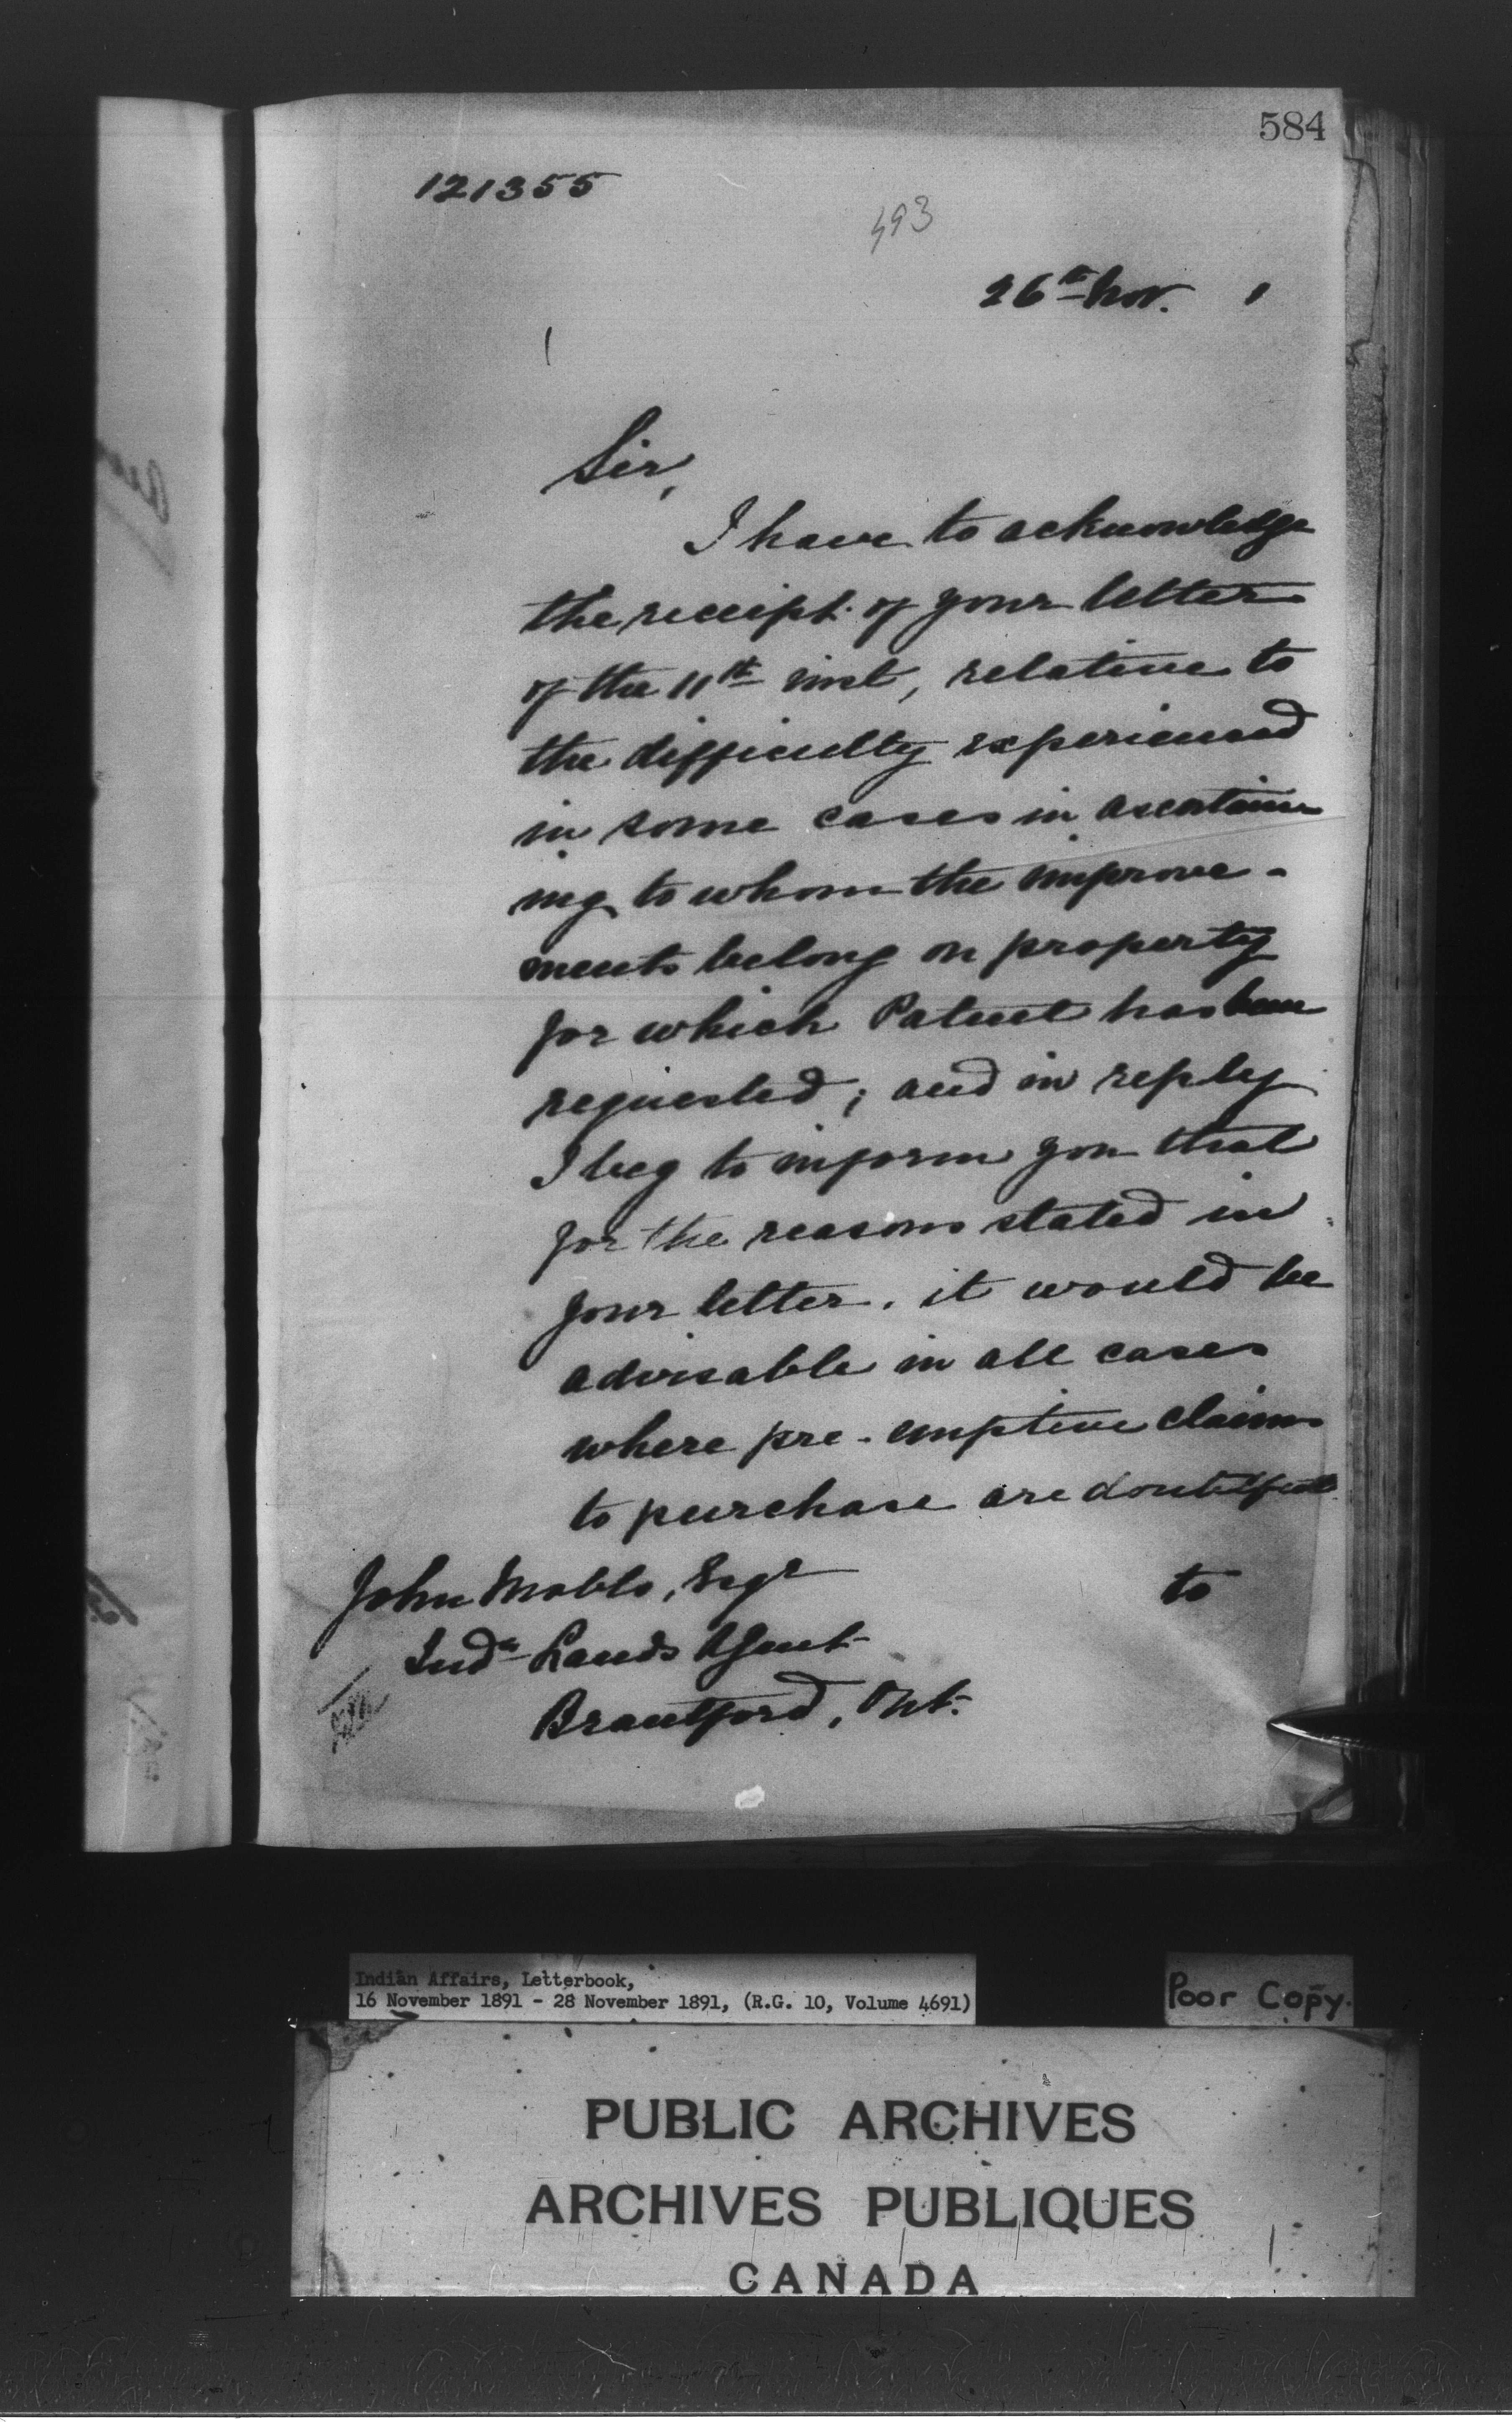 584
121355
493
26th Nov. 1
Sir,
I have to acknowledge
the receipt of your letter
of the 11th inst, relative to
the difficulty experienced
in some cases in ascertain
ing to whom the improve-
ments belong on property
for which Patent has been
requested; and in reply
I beg to inform you that
for the reasons stated in
your letter, it would be
advisable in all cases
where pre-emptive claims
to purchase are doubtful
to
John Esqr
Indn Lands Agent
Brantford, Ont.
Indian Affairs, Letterbook,
16 November 1891 - 28 November 1891, (R.G. 10, Volume 4691)
Poor Copy.
PUBLIC ARCHIVES
ARCHIVES PUBLIQUES
CANADA